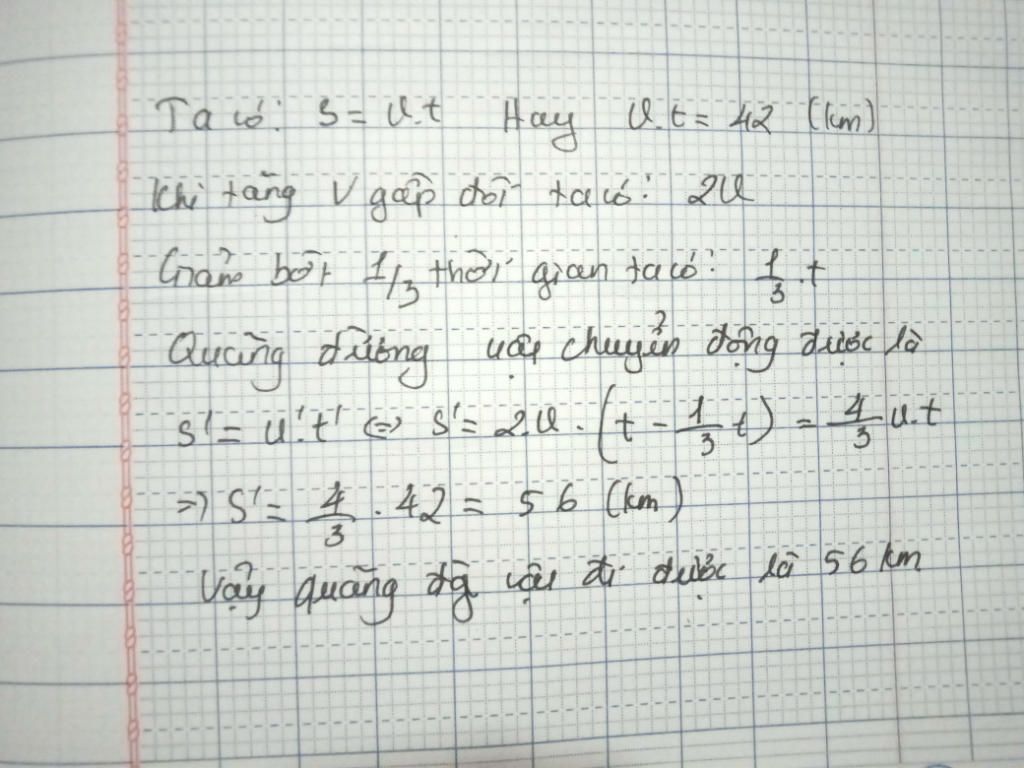 Ta có: S = v.t Hay v.t = 42 (km)
Khi tăng V gấp đôi ta có: 2v
Giảm bớt 1/3 thời gian ta có: 1/3 .t
Quãng đường vật chuyển động được là
S' = v'.t' <=> S' = 2.v . (t - 1/3 t) = 4/3 v.t
=> S' = 4/3 . 42 = 56 (km)
Vậy quãng đg vật đi được là 56 km